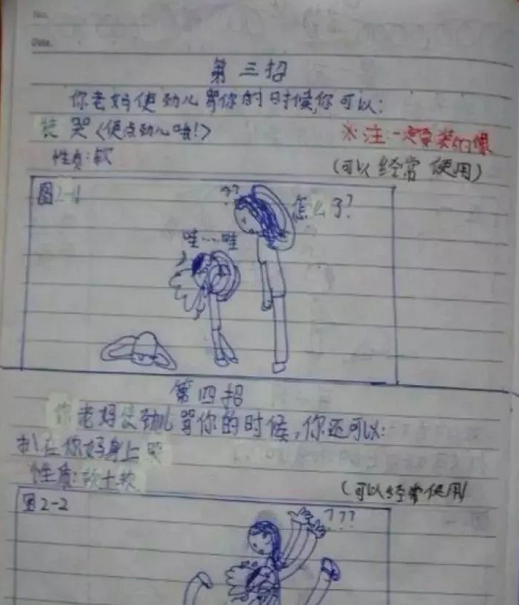 No.
Date.
第三招
你老妈使劲儿骂你的时候,你可以:
装哭<使点劲儿哦!>
※注:一定要装的像
性质:软
(可以经常使用)
图2-1
??
怎么了?
哇…哇
第四招
你老妈使劲儿骂你的时候,你还可以:
扒在你妈身上哭
性质:软+软
(可以经常使用)
图2-2
???